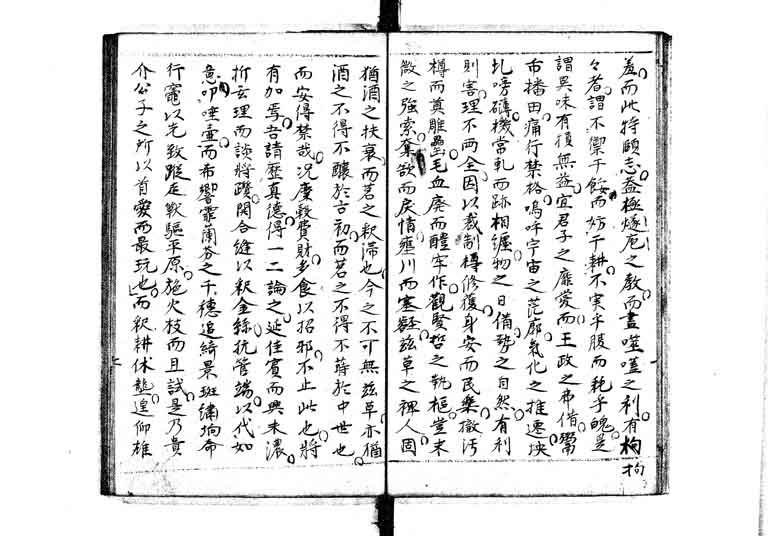 羞而此特頤志益極燧庖之教而盡噬嗑之利有拘
々者謂不禦于餒而妨于耕不実乎服而耗乎魄是
謂異味有損無益宜君子之靡愛而王政之弗借
市播田痛行禁格嗚呼宇宙之茫廓氣化之推遷
圠嗙礴機常軋而跡相纏物之日備勢之自然有利
則害理不両全因以裁制樽修獲身安而民樂撤汚
樽而奠雕罍毛血廃而醴牢作觀聖哲之執樞豈末
散之強索棄欲而戾情壅川而塞茲草之裨人固
猶酒之扶衰而茗之釈滞也今之不可無茲草亦猶
酒之不得不釀於古初而茗之不得不蒔於中世也
而安得禁哉况糜穀費財多食以招邪不止此也将
有加焉吾請歴真德得一二論之延佳賓而興未濃
折玄理而談将躓閑合縫以釈金絲抗管端以代如
意叩唾壷而布響靄蘭芬之千穂追綺景班繡垧命
行竈以先致蹤近戦駆平原施火枝而且試是乃貴
介公子之所以首愛而最玩也而釈耕休壟遑仰雄
拘